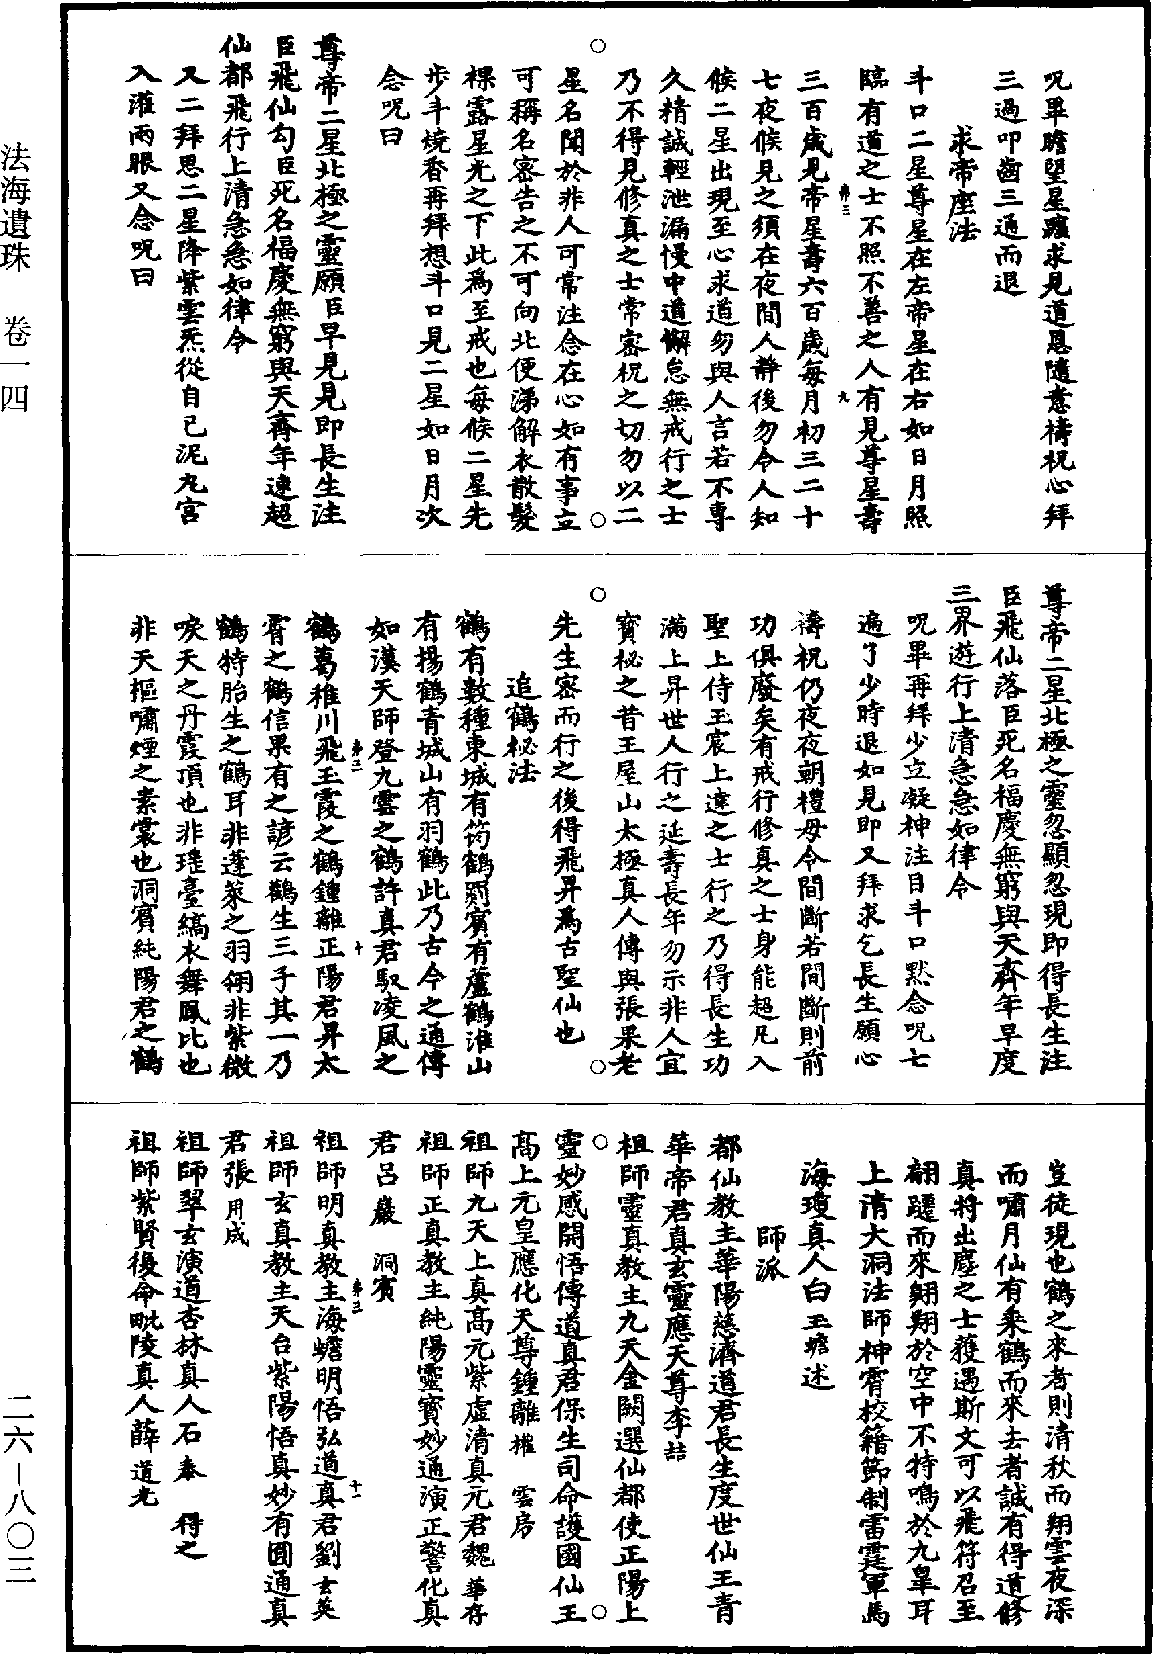 法海遺珠 卷一四
二六－八〇三
呪畢瞻望星躔求見道恩隨意禱祝心拜
三過叩齒三通而退
求帝座法
斗口二星尊星在左帝星在右如日月照
臨有道之士不照不善之人有見尊星壽
第三 九
三百歲見帝星壽六百歲每月初三二十
七夜候見之須在夜間人靜後勿令人知
候二星出現至心求道勿與人言若不專
久精誠輕泄漏慢中道懈怠無戒行之士
乃不得見修真之士常密祝之切勿以二
星名聞於非人可常注念在心如有事立
可稱名密告之不可向北便涕解衣散髮
裸露星光之下此為至戒也每候二星先
步斗燒香再拜想斗口見二星如日月次
念呪曰
尊帝二星北極之靈願臣早見見即長生注
臣飛仙勾臣死名福慶無窮與天齊年速超
仙都飛行上清急急如律令
又二拜思二星降紫雲炁從自己泥丸宮
入灌兩眼又念呪曰
尊帝二星北極之靈忽顯忽現即得長生注
臣飛仙落臣死名福慶無窮與天齊年早度
三界遊行上清急急如律令
呪畢再拜少立凝神注目斗口默念呪七
遍了少時退如見即又拜求乞長生願心
禱祝仍夜夜朝禮毋令間斷若間斷則前
功俱廢矣有戒行修真之士身能超凡入
聖上侍玉宸上達之士行之乃得長生功
滿上昇世人行之延壽長年勿示非人宜
寶秘之昔王屋山太極真人傳與張果老
先生密而行之後得飛昇為古聖仙也
追鶴秘法
鶴有數種東城有筠鶴罽賓有蘆鶴淮山
有揚鶴青城山有羽鶴此乃古今之通傳
如漢天師登九雲之鶴許真君馭凌風之
鶴葛稚川飛玉霞之鶴鍾離正陽君昇太
第三 十
霄之鶴信果有之諺云鸛生三子其一乃
鶴特胎生之鶴耳非蓬萊之羽翎非紫微
唳天之丹霞頂也非瑤臺縞衣舞鳳比也
非天樞嘯煙之素裳也洞賓純陽君之鶴
豈徒現也鶴之來者則清秋而翔雲夜深
而嘯月仙有乘鶴而來去者誠有得道修
真將出塵之士獲遇斯文可以飛符召至
翩躚而來翱翔於空中不特鳴於九臯耳
上清大洞法師神霄校籍節制雷霆軍馬
海瓊真人白玉蟾述
師派
都仙教主華陽慈濟道君長生度世仙王青
華帝君真玄靈應天尊李喆
祖師靈真教主九天金闕選仙都使正陽上
靈妙感開悟傳道真君保生司命護國仙王
高上元皇應化天尊鍾離權 雲房
祖師九天上真高元紫虛清真元君魏華存
祖師正真教主純陽靈寶妙通演正警化真
君呂巖 洞賓
祖師明真教主海蟾明悟弘道真君劉玄英
第三 十一
祖師玄真教主天台紫陽悟真妙有圓通真
君張用成
祖師翠玄演道杏林真人石泰 得之
祖師紫賢復命毗陵真人薛道光